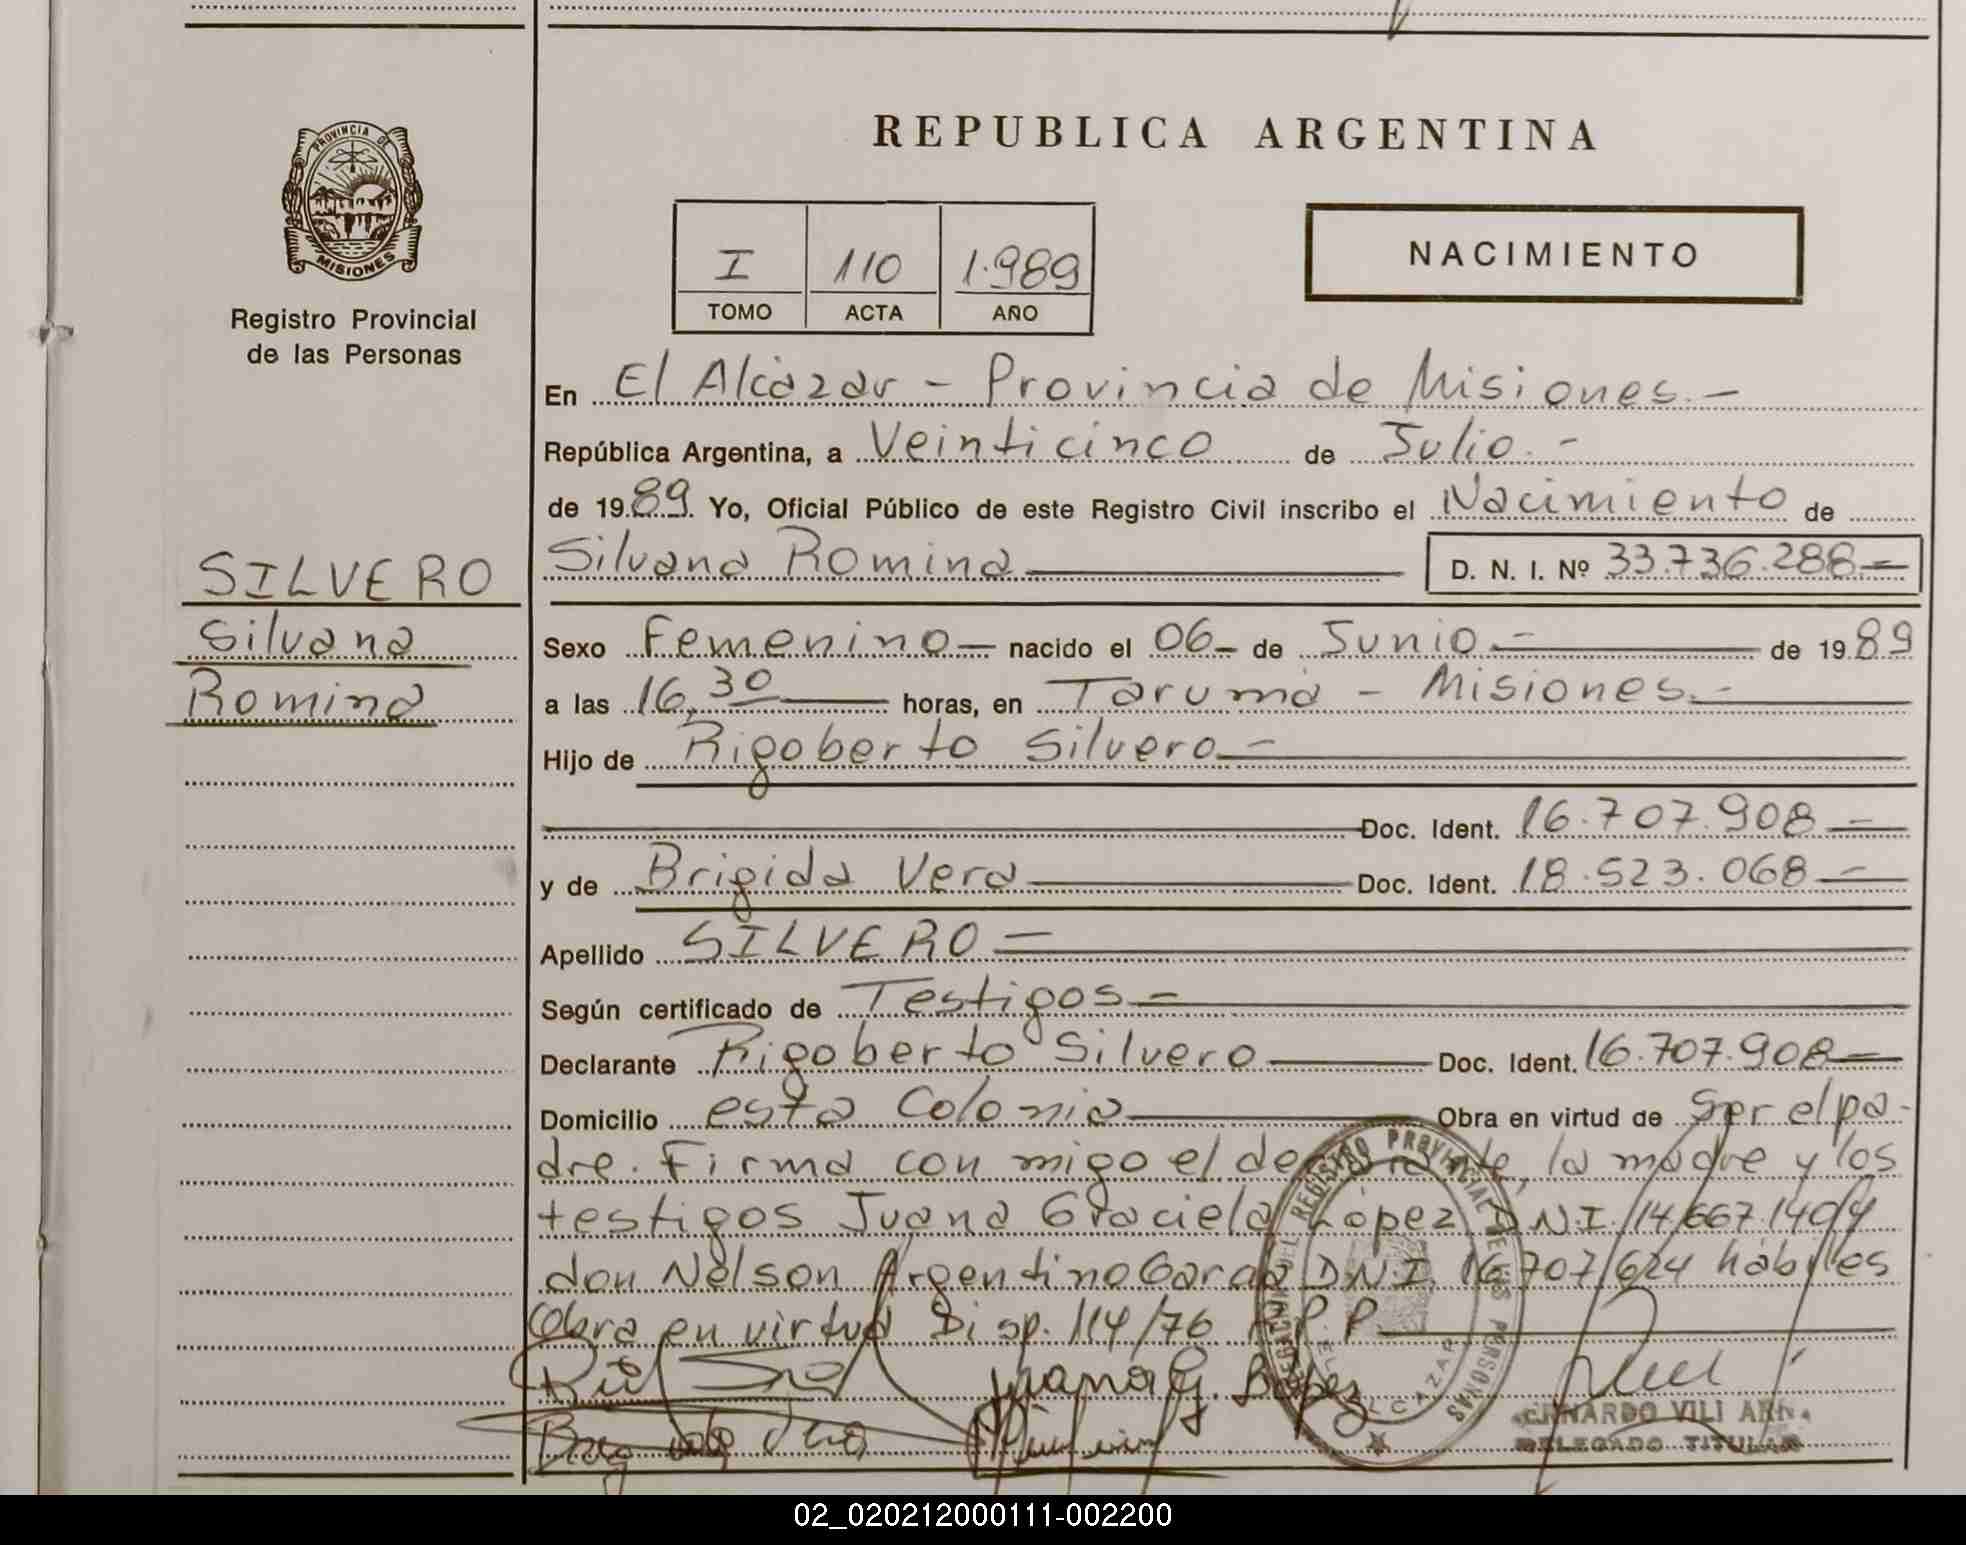 REPUBLICA ARGENTINA
PROVINCIA DE
MISIONES
Registro Provincial
de las Personas
I 110 1.989
TOMO ACTA AÑO
NACIMIENTO
En El Alcázar - Provincia de Misiones.-
República Argentina, a Veinticinco de Julio.-
de 1989 Yo, Oficial Público de este Registro Civil inscribo el Nacimiento de
Silvana Romina D. N. I. Nº 33.736.288-
SILVERO
Silvana
Romina
Sexo Femenino- nacido el 06- de Junio.- de 1989
a las 16,30 horas, en Taruma - Misiones.-
Hijo de Rigoberto Silvero.-
Doc. Ident. 16.707.908-
y de Brigida Vera Doc. Ident. 18.523.068-
Apellido SILVERO-
Según certificado de Testigos-
Declarante Rigoberto Silvero Doc. Ident. 16.707.908-
Domicilio esta Colonia Obra en virtud de ser el pa-
dre. Firma con migo el declarante, la madre y los
testigos Juana Graciela López D.N.I. 14.667.140 y
don Nelson Argentino D.N.I. 16.707.624 hábiles
Obra en virtud Disp. 114/76 R.P.P.
Juana G. López
DELEGACION DEL REGISTRO PROVINCIAL DE LAS PERSONAS
EL ALCAZAR
VILI
DELEGADO TITULAR
02_020212000111-002200